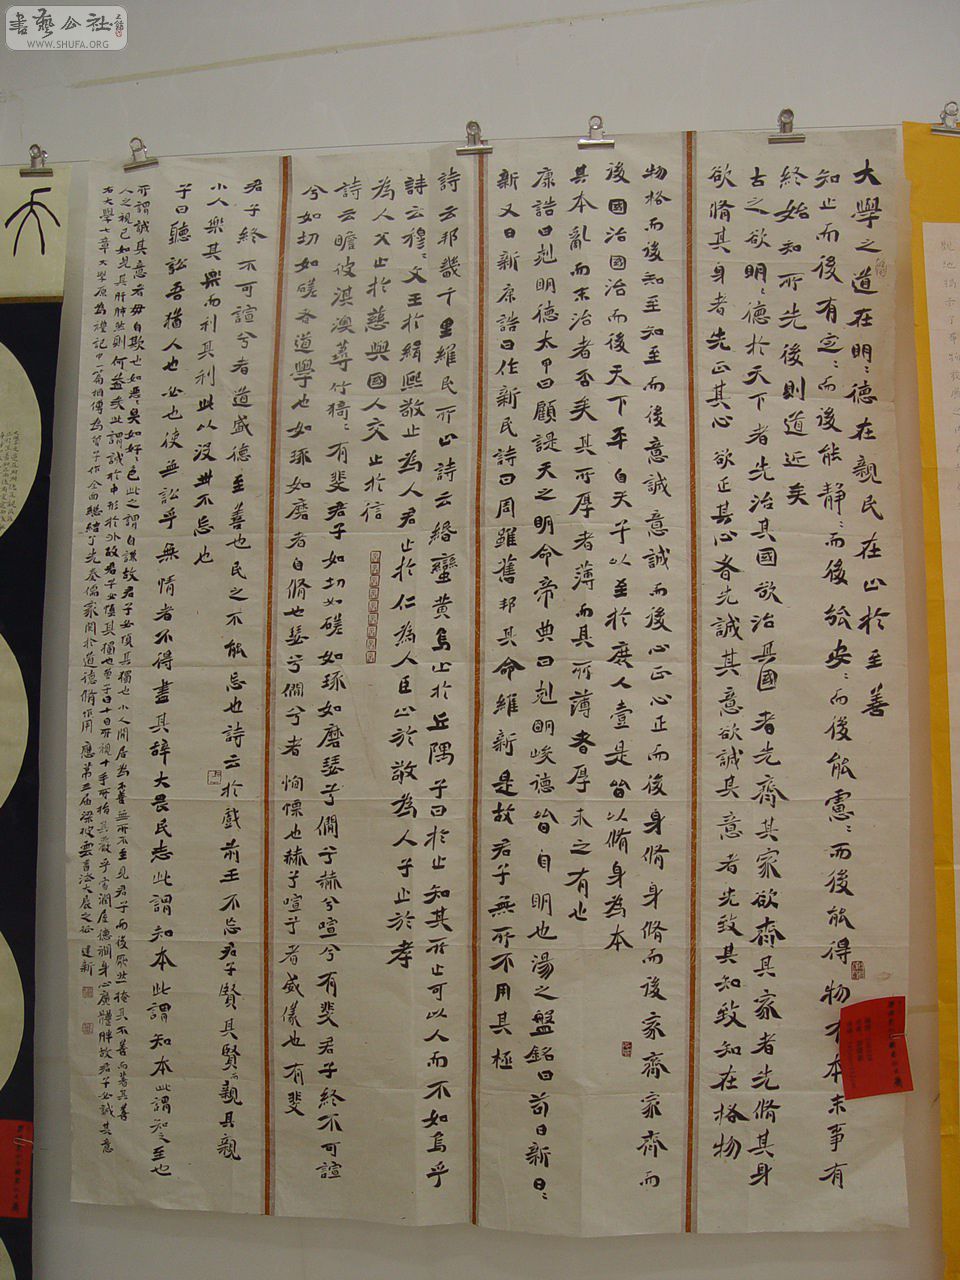 大學之道在明:德在親民在止於至善
知止而後有定:而後能靜:而後能安:而後能慮:而後能得物有本末事有
終始知所先後則道近矣
古之欲明:德於天下者先治其國欲治其國者先齊其家欲齊其家者先脩其身
欲脩其身者先正其心欲正其心者先誠其意欲誠其意者先致其知致知在格物
物格而後知至知至而後意誠意誠而後心正心正而後身脩身脩而後家齊家齊而
後國治國治而後天下平自天子以至於庶人壹是皆以脩身為本
其本亂而末治者否矣其所厚者薄而其所薄者厚未之有也
康誥曰剋明德太甲曰顧諟天之明命帝典曰剋明峻德皆自明也湯之盤銘曰苟日新日:
新又日新康誥曰作新民詩曰周雖舊邦其命維新是故君子無所不用其極
詩云邦畿千里維民所止詩云緡蠻黃鳥止於丘隅子曰於止知其所止可以人而不如鳥乎
詩云穆:文王於緝熙敬止為人君止於仁為人臣止於敬為人子止於孝
為人父止於慈與國人交止於信
詩云瞻彼淇澳菉竹猗:有斐君子如切如磋如琢如磨瑟兮僩兮赫兮喧兮有斐君子終不可諠
兮如切如磋者道學也如琢如磨者自脩也瑟兮僩兮者恂慄也赫兮喧兮者威儀也有斐
君子終不可諠兮者道盛德至善也民之不能忘也詩云於戲前王不忘君子賢其賢而親其親
小人樂其樂而利其利此以沒世不忘也
子曰聽訟吾猶人也必也使無訟乎無情者不得盡其辭大畏民志此謂知本此謂知本此謂知之至也
所謂誠其意者毋自欺也如惡:臭如好:色此之謂自謙故君子必慎其獨也小人閒居為不善無所不至見君子而後厭然掩其不善而著其善
人之視己如見其肝肺然則何益矣此謂誠於中形於外故君子必慎其獨也曾子曰十目所視十手所指其嚴乎富潤屋德潤身心廣體胖故君子必誠其意
右大學七章大學原為禮記中一篇相傳為曾子作全面總結了先秦儒家關於道德脩作用應第三屆梁披雲書法大展之征建新
書藝公社
WWW.SHUFA.ORG